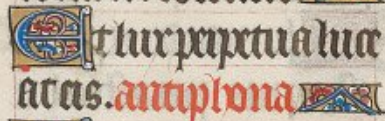 Et lux perpetua luce
at eis. antiphona